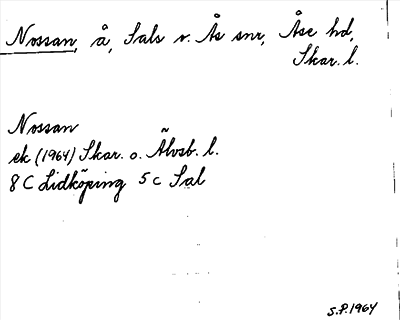 Nossan, å, Sals o. Ås snr, Åse hd,
Skar. l.
Nossan
ek (1964) Skar. o. Älvsb. l.
8 C Lidköping 5 c Sal
S.P. 1964